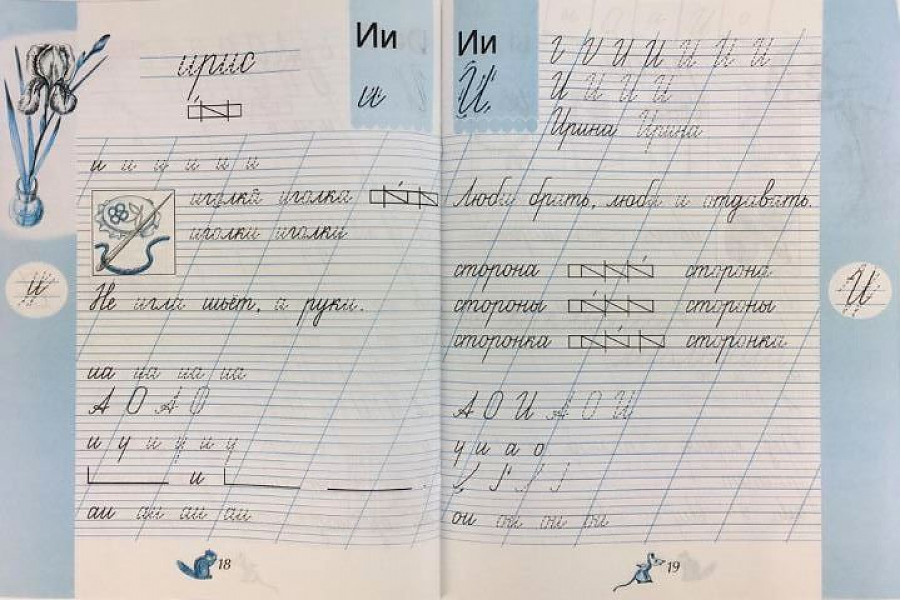 Ии
и
ирис
и и и и и и
иголка иголка
иголки иголки
и
Не игла шьёт, а руки.
иа иа иа иа
А О А О
и у и у и у
и
аи аи аи аи
18
Ии
И
И И И И И
И И И И
Ирина Ирина
Люби брать, люби и отдавать.
сторона сторона
И
стороны стороны
сторонка сторонка
А О И А О И
у и а о
ои ои ои ои
19